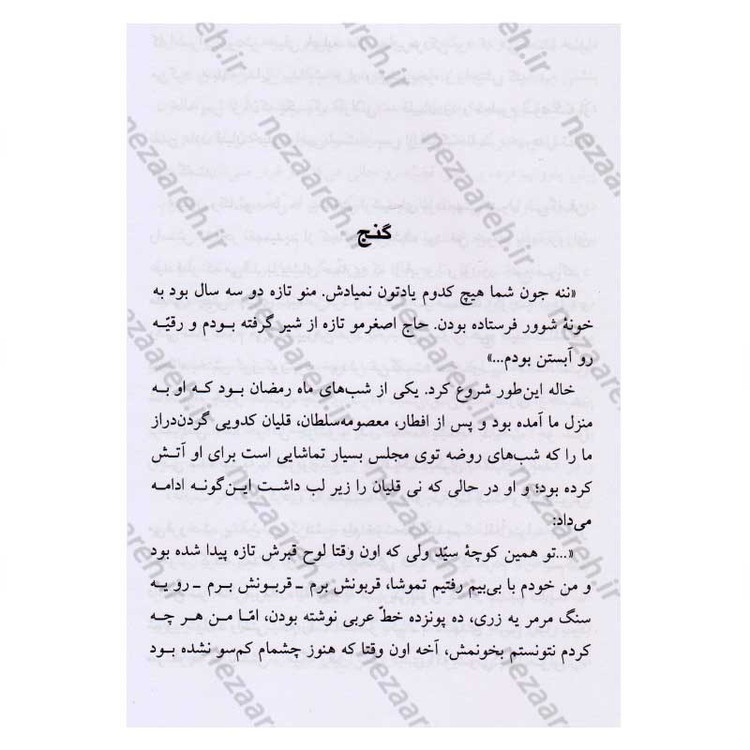 گنج
«ننه جون شما هیچ کدوم یادتون نمیادش. منو تازه دو سه سال بود به
خونهٔ شوور فرستاده بودن. حاج اصغرمو تازه از شیر گرفته بـودم و رقیّـه
رو آبستن بودم...»
خاله این‌طور شروع کرد. یکی از شب‌های ماه رمضان بـود کـه او بـه
منزل ما آمده بود و پس از افطار، معصومه‌سلطان، قلیان کدویی گردن‌دراز
ما را که شب‌های روضه توی مجلس بسیار تماشایی است برای او آتـش
کرده بود؛ و او در حالی که نی قلیان را زیر لب داشـت ایـن‌گونـه ادامـه
می‌داد:
«...تو همین کوچهٔ سیّد ولی که اون وقتا لوح قبرش تازه پیدا شده بود
و من خودم با بی‌بیم رفتیم تموشا، قربونش برم ـ قربـونش بـرم ـ رو یـه
سنگ مرمر یه زری، ده پونزده خطّ عربی نوشته بودن، امّـا مـن هـر چـه
کردم نتونستم بخونمش، آخه اون وقتا که هنوز چشمام کم‌سو نشده بـود
nezaareh.ir